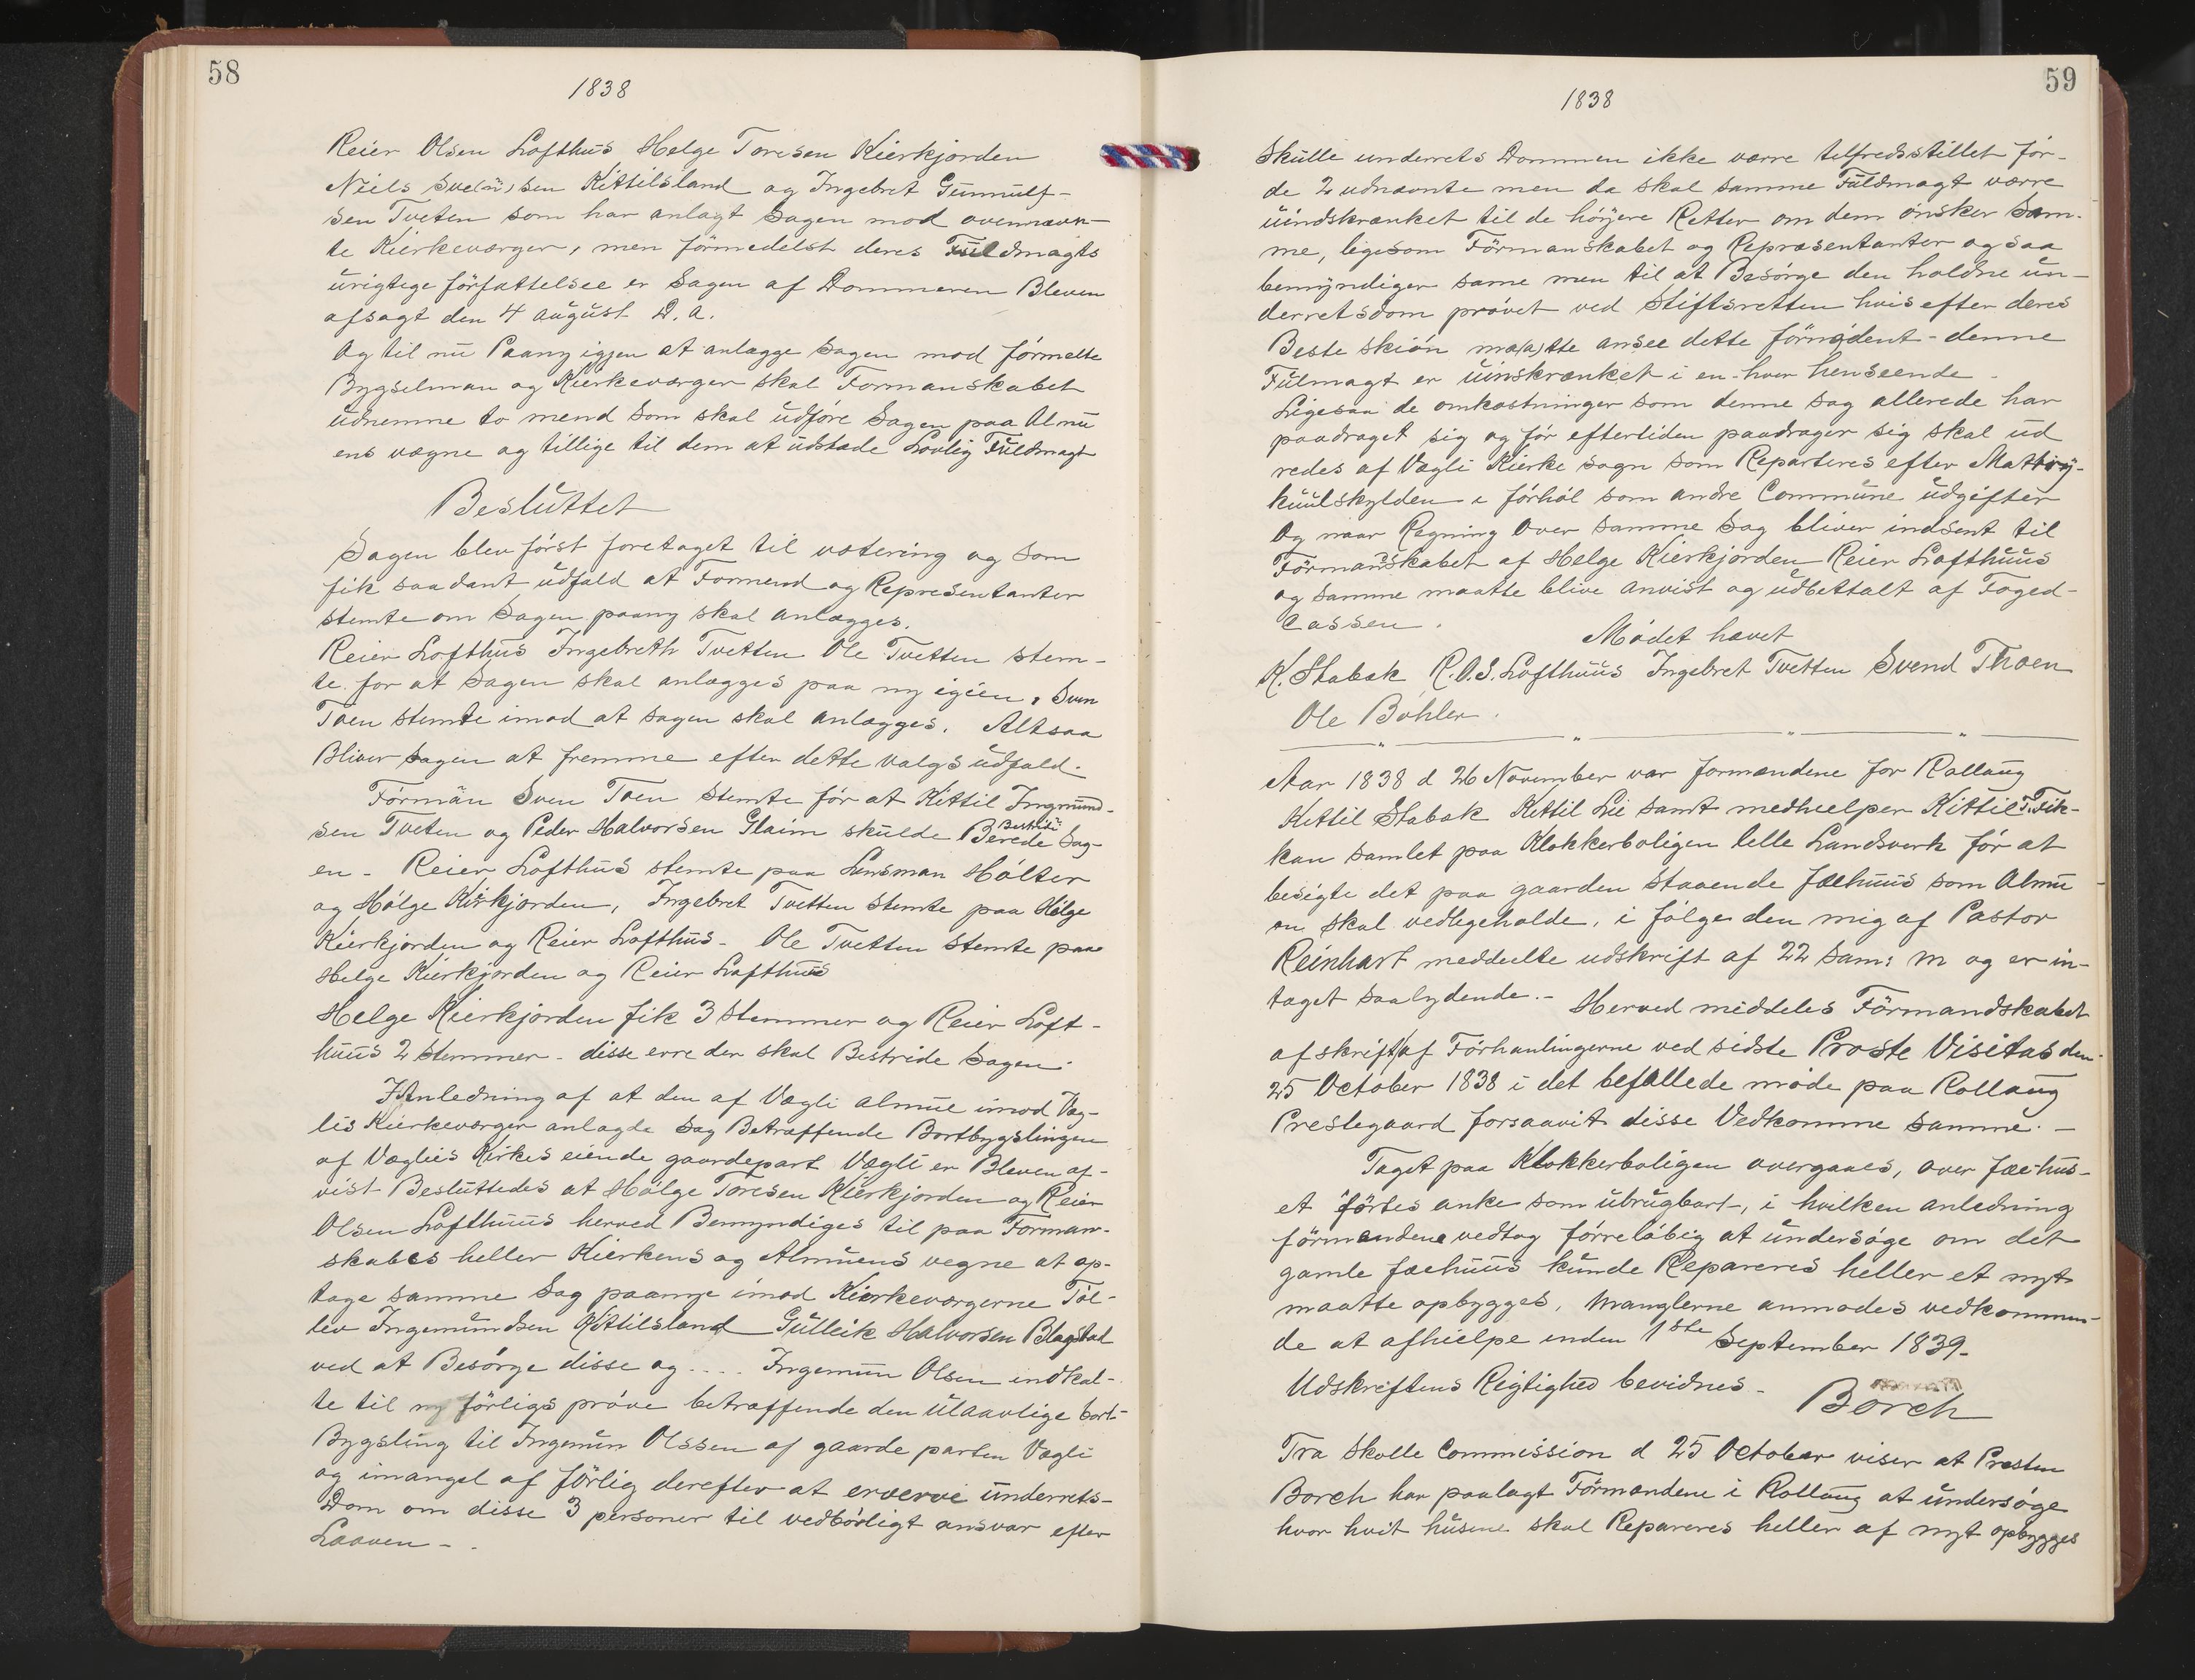 58
1838
Reier Olsen Lofthus Helge Toresen Kierkjorden
Niels Sve(n)sen Kittilsland og Ingebret Gunnulf-
sen Tveten som har anlagt Sagen mod ovennævn-
te Kierkeværger, men formedelst deres Fuldmagts
urigtige författelsee er Sagen af Dommeren Bleven
afsagt den 4 august D.a.
Og til nu Paany igjen at anlægge Sagen mod förmelte
Bygselman og Kierkeværger skal Formanskabet
udnemne to mend Som skal udföre Sagen paa Almu
ens vægne og tillige til dem at udstade Lovlig Fuldmagt
Besluttet
Sagen blev först foretaget til votering og Som
fik saadant udfald at Formend og Representanter
stemte om Sagen paany skal anlægges.
Reier Lofthus Ingebreth Tvetten Ole Tvetten stem-
te for at Sagen skal anlægges paa ny igien, Sven
Toen stemte imod at sagen skal anlægges. Altsaa
Bliver sagen at fremme efter dette valgs udfald.
Förmän Sven Toen stemte för at Kittil Ingmund-
sen Tveten og Peder Halvorsen Glaim skulde Berede Bestride Sag-
en - Reier Lofthus stemte paa Lensman Hólter
og Hólge Kirkjorden, Ingebret Tvetten stemte paa Hölge
Kierkjorden og Reier Lofthus - Ole Tvetten stemte paa
Helge Kierkjorden og Reier Lofthuus
Helge Kierkjorden fik 3 stemmer og Reier Loft-
huus 2 stemmer - disse erre der skal Bestride Sagen.
I Anledning af at den af Vægli almue imod Væg-
lis Kierkeværger anlagde Sag Betræffende Bortbygslingen
af Væglies Kirkes eiende gaardepart Vægli er Bleven af-
vist Besluttedes at Hólge Toresen Kierkjorden og Reier
Olsen Lofthuus herved Bemyndiges til paa Forman-
skabes heller Kierkens og Almuens vegne at op-
tage samme Sag paanye imod Kierkeværgerne Töl-
lev Ingemundsen Kittilsland Gulleik Halvorsen Blagstad
ved at Besórge disse og .... Ingemun Olsen indkal-
te til ny förligs próve betræffende den ulaavlige bort-
Bygsling til Ingemun Olssen af gaarde parten Vægli
og imangel af förlig derefter at erverve underrets-
Dom om disse 3 personer til vedbörligt ansvar efter
Laaven - .
59
1838
Skulle underrets Dommen ikke værre telfredsstillet för-
de 2 udnævnte men da skal samme Fuldmagt værre
uindskrænket til de hóyere Retter om dem ónsker Sam-
me, ligesom Förmanskabet og Repræsentanter ogsaa
bemyndiger same men til at Besórge den holdne un-
derretsdom próvet ved Stiftsretten hvis efter deres
Beste skión ma(a)tte ansee dette förnödent - denne
Fulmagt er uinskrænket i en-hver henseende -
Ligesaa de omkostninger som denne sag allerede har
paadraget sig og för eftertiden paadrager sig skal ud
redes af Vægli Kierke sogn som Reparteres efter Matriy-
kuulskylden i fórhól som andre Commune udgifter
Og naar Regning Over samme Sag bliver indsent til
Förmanskabet af Helge Kierkjorden Reier Lofthuus
og samme maatte blive anvist og udbettalt af Foged-
Cassen.
Módet hævet
K. Stabæk R.O.S. Lofthuus Ingebret Tvetten Svend Thoen
Ole Bóhler.
Aar 1838 d 26 November var formændene for Rollaug
Kettil Stabæk Kettil Lie samt medhielper Kittil T. Fik-
kan samlet paa Klokkerboligen lelle Landsverk för at
besigte det paa gaarden staaende fæehuus som Almu-
en skal vedlegeholde, i fólge den mig af Pastor
Reinhart meddeelte udskrift af 22 Sam: m og er in-
taget saalydende. - Herved middeles Förmandskabet
afskrift af Förhanlingerne ved sidste Proste Visitas den
25 October 1838 i det befallede móde paa Rollaug
Prestegaard forsaavit disse Vedkomme samme. -
Taget paa Klokkerboligen overgaaes, over fæehus-
et förtes anke som ubrugbart, i hvilken anledning
förmændene vedtog förrelöbig at undersóge om det
gamle fæehuus kunde Repareres heller et nyt
maatte opbygges, Manglerne anmodes vedkommen-
de at afhielpe inden 1ste September 1839-
Udskreftens Rigtighed bevidnes -
Borch
Fra Skolle Commission d 25 October viser at Presten
Borch har paalagt Förmændene i Rollaug at undersóge
hvor hvit husene skal Repareres heller af nyt opbygges